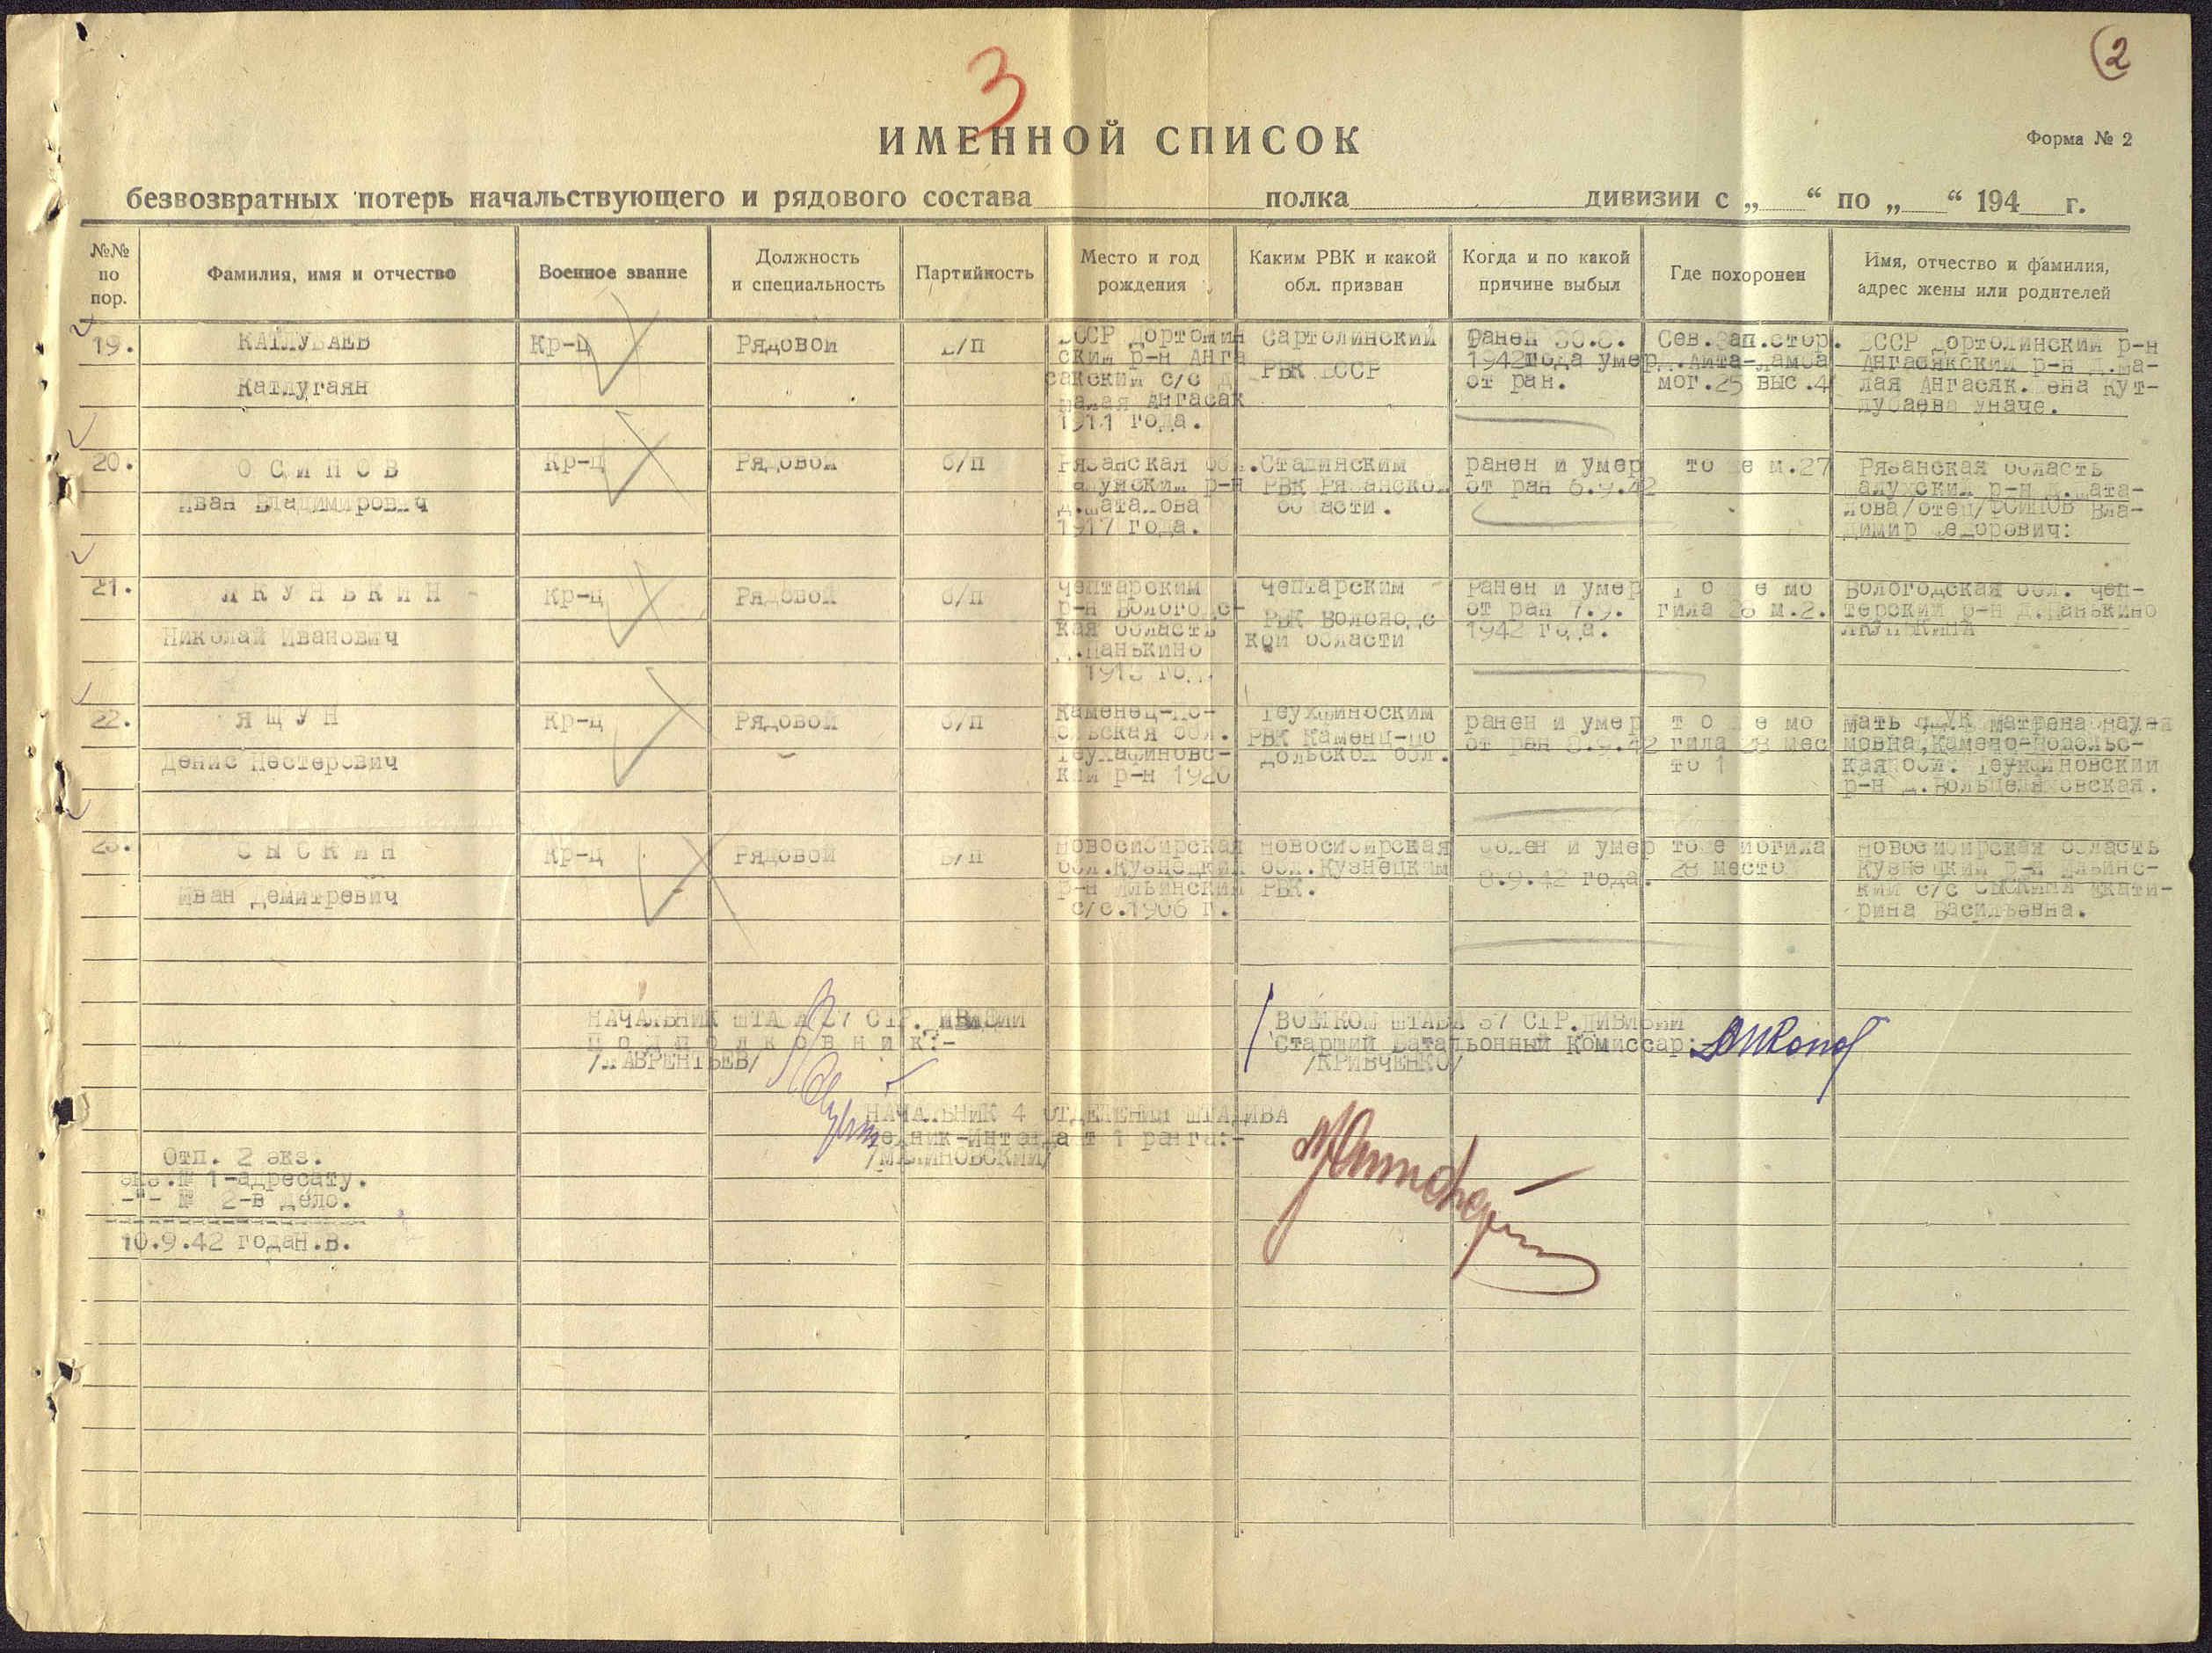 3
2
ИМЕННОЙ СПИСОК
Форма № 2
безвозвратных потерь начальствующего и рядового состава полка дивизии с „ “ по „ “ 194 г.
№№ по пор.
Фамилия, имя и отчество
Военное звание
Должность и специальность
Партийность
Место и год рождения
Каким РВК и какой обл. призван
Когда и по какой причине выбыл
Где похоронен
Имя, отчество и фамилия, адрес жены или родителей
19.
КАТЛУБАЕВ
Катлугаян
Кр-ц
Рядовой
Б/п
БССР Дортомин
ский р-н Анга
сакский с/с д
малая Ангасак
1911 года.
Сартолинский
РВК БССР
Ранен 30.8.
1942года умер
от ран.
Сев.Зап.стор.
мог.25 выс.4
БССР Дортолинский р-н
Ангасякский р-н д.ма-
лая Ангасяк. Жена Кут-
лубаева Уначе.
20.
О С И П О В
Иван Владимирович
Кр-ц
Рядовой
б/п
Рязанская обл.
р-н
д.Шаталова
1917 года.
Сталинским
РВК Рязанской
области.
ранен и умер
от ран 6.9.42
то же м.27
Рязанская область
р-н д.Шата-
лова/отец/ОСИПОВ Вла-
димир Федорович:
21.
Л К У Н Ь К И Н
Николай Иванович
Кр-ц
Рядовой
б/п
Чептарским
р-н Вологодс-
кая область
д.Панькино
Чептарским
РВК Вологодс
кой области
Ранен и умер
от ран 7.9.
1942 года.
Т о ж е мо
гила 28 м.2.
Вологодская обл. Чеп-
терский р-н д.Панькино
22.
Я Щ У Н
Денис Нестерович
Кр-ц
Рядовой
б/п
Каменец-по-
дольская обл.
Теухафиновс-
кий р-н 1920
Теухфиноским
РВК Каменц-по
дольской обл.
ранен и умер
от ран 8.9.42
т о ж е мо
гила 28 мес
то 1
Мать Матрена
мовна,Камено-Подольс-
кая обл. Теунфиновский
р-н
23.
С Ы С К И Н
Иван Демитревич
Кр-ц
Рядовой
Б/п
Новосибирская
обл.Кузнецкий
р-н Ильинский
с/с.1906 г.
Новосибирская
обл.Кузнецким
РВК.
болен и умер
8.9.42 года.
то же могила
28 место
Новосибирская область
Кузнецкий р-н Ильинс-
кий с/с Сыскина Екати-
рина Васильевна.
НАЧАЛЬНИК ШТАБА 37 СТР.ДИВИЗИИ
П о д п о л к о в н и к:-
/ЛАВРЕНТЬЕВ/
ВОЕНКОМ ШТАБА 37 СТР.ДИВИЗИИ
Старший Батальонный Комиссар:-
/КРИВЧЕНКО/
НАЧАЛЬНИК 4 ОТДЕЛЕНИЯ ШТАДИВА
Техник-Интендант 1 ранга:-
/МАЛИНОВСКИЙ/
Отп. 2 экз.
экз.№ 1-адресату.
-"- № 2-в дело.
10.9.42 годаН.В.